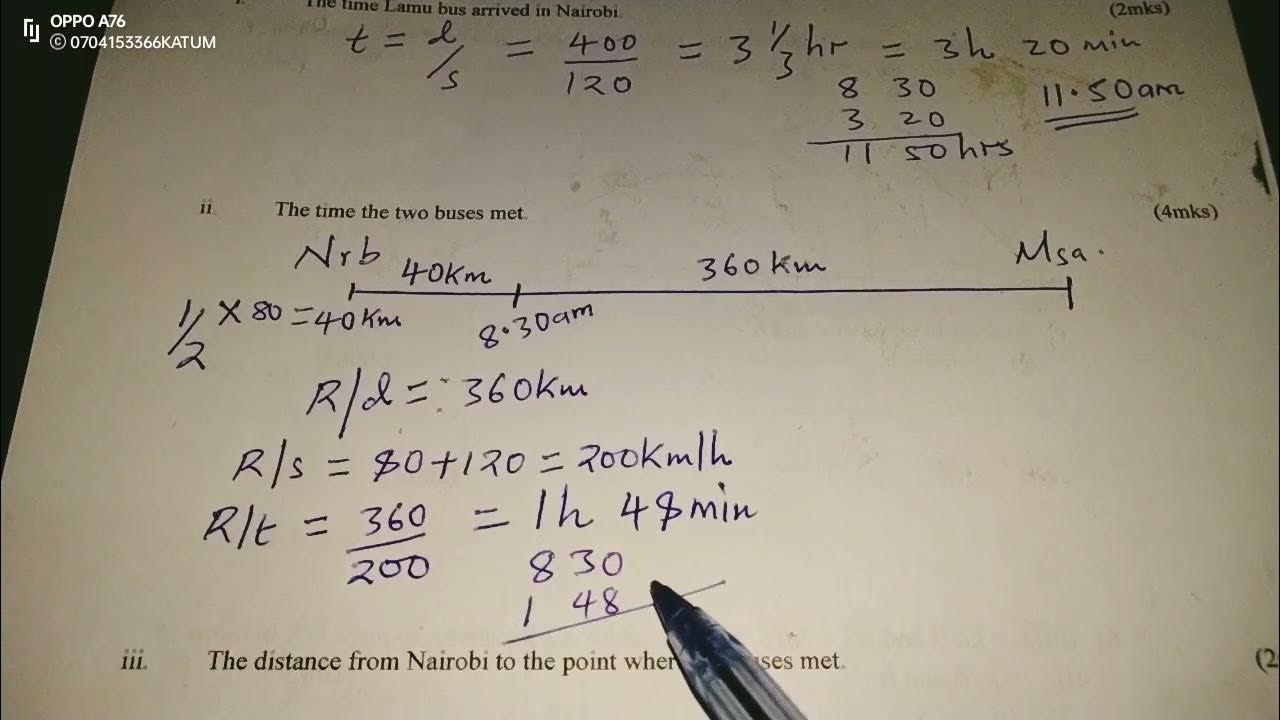 OPPO A76
© 0704153366KATUM
The time Lamu bus arrived in Nairobi. (2mks)
t = d/s = 400/120 = 3 1/3 hr = 3h 20 min
8 30
3 20
11 50hrs
11.50am
ii. The time the two buses met. (4mks)
Nrb 40km 360km Msa.
1/2 × 80 = 40km 8.30am
R/d = 360km
R/s = 80+120 = 200km/h
R/t = 360/200 = 1h 48min
8 30
1 48
iii. The distance from Nairobi to the point met. (2